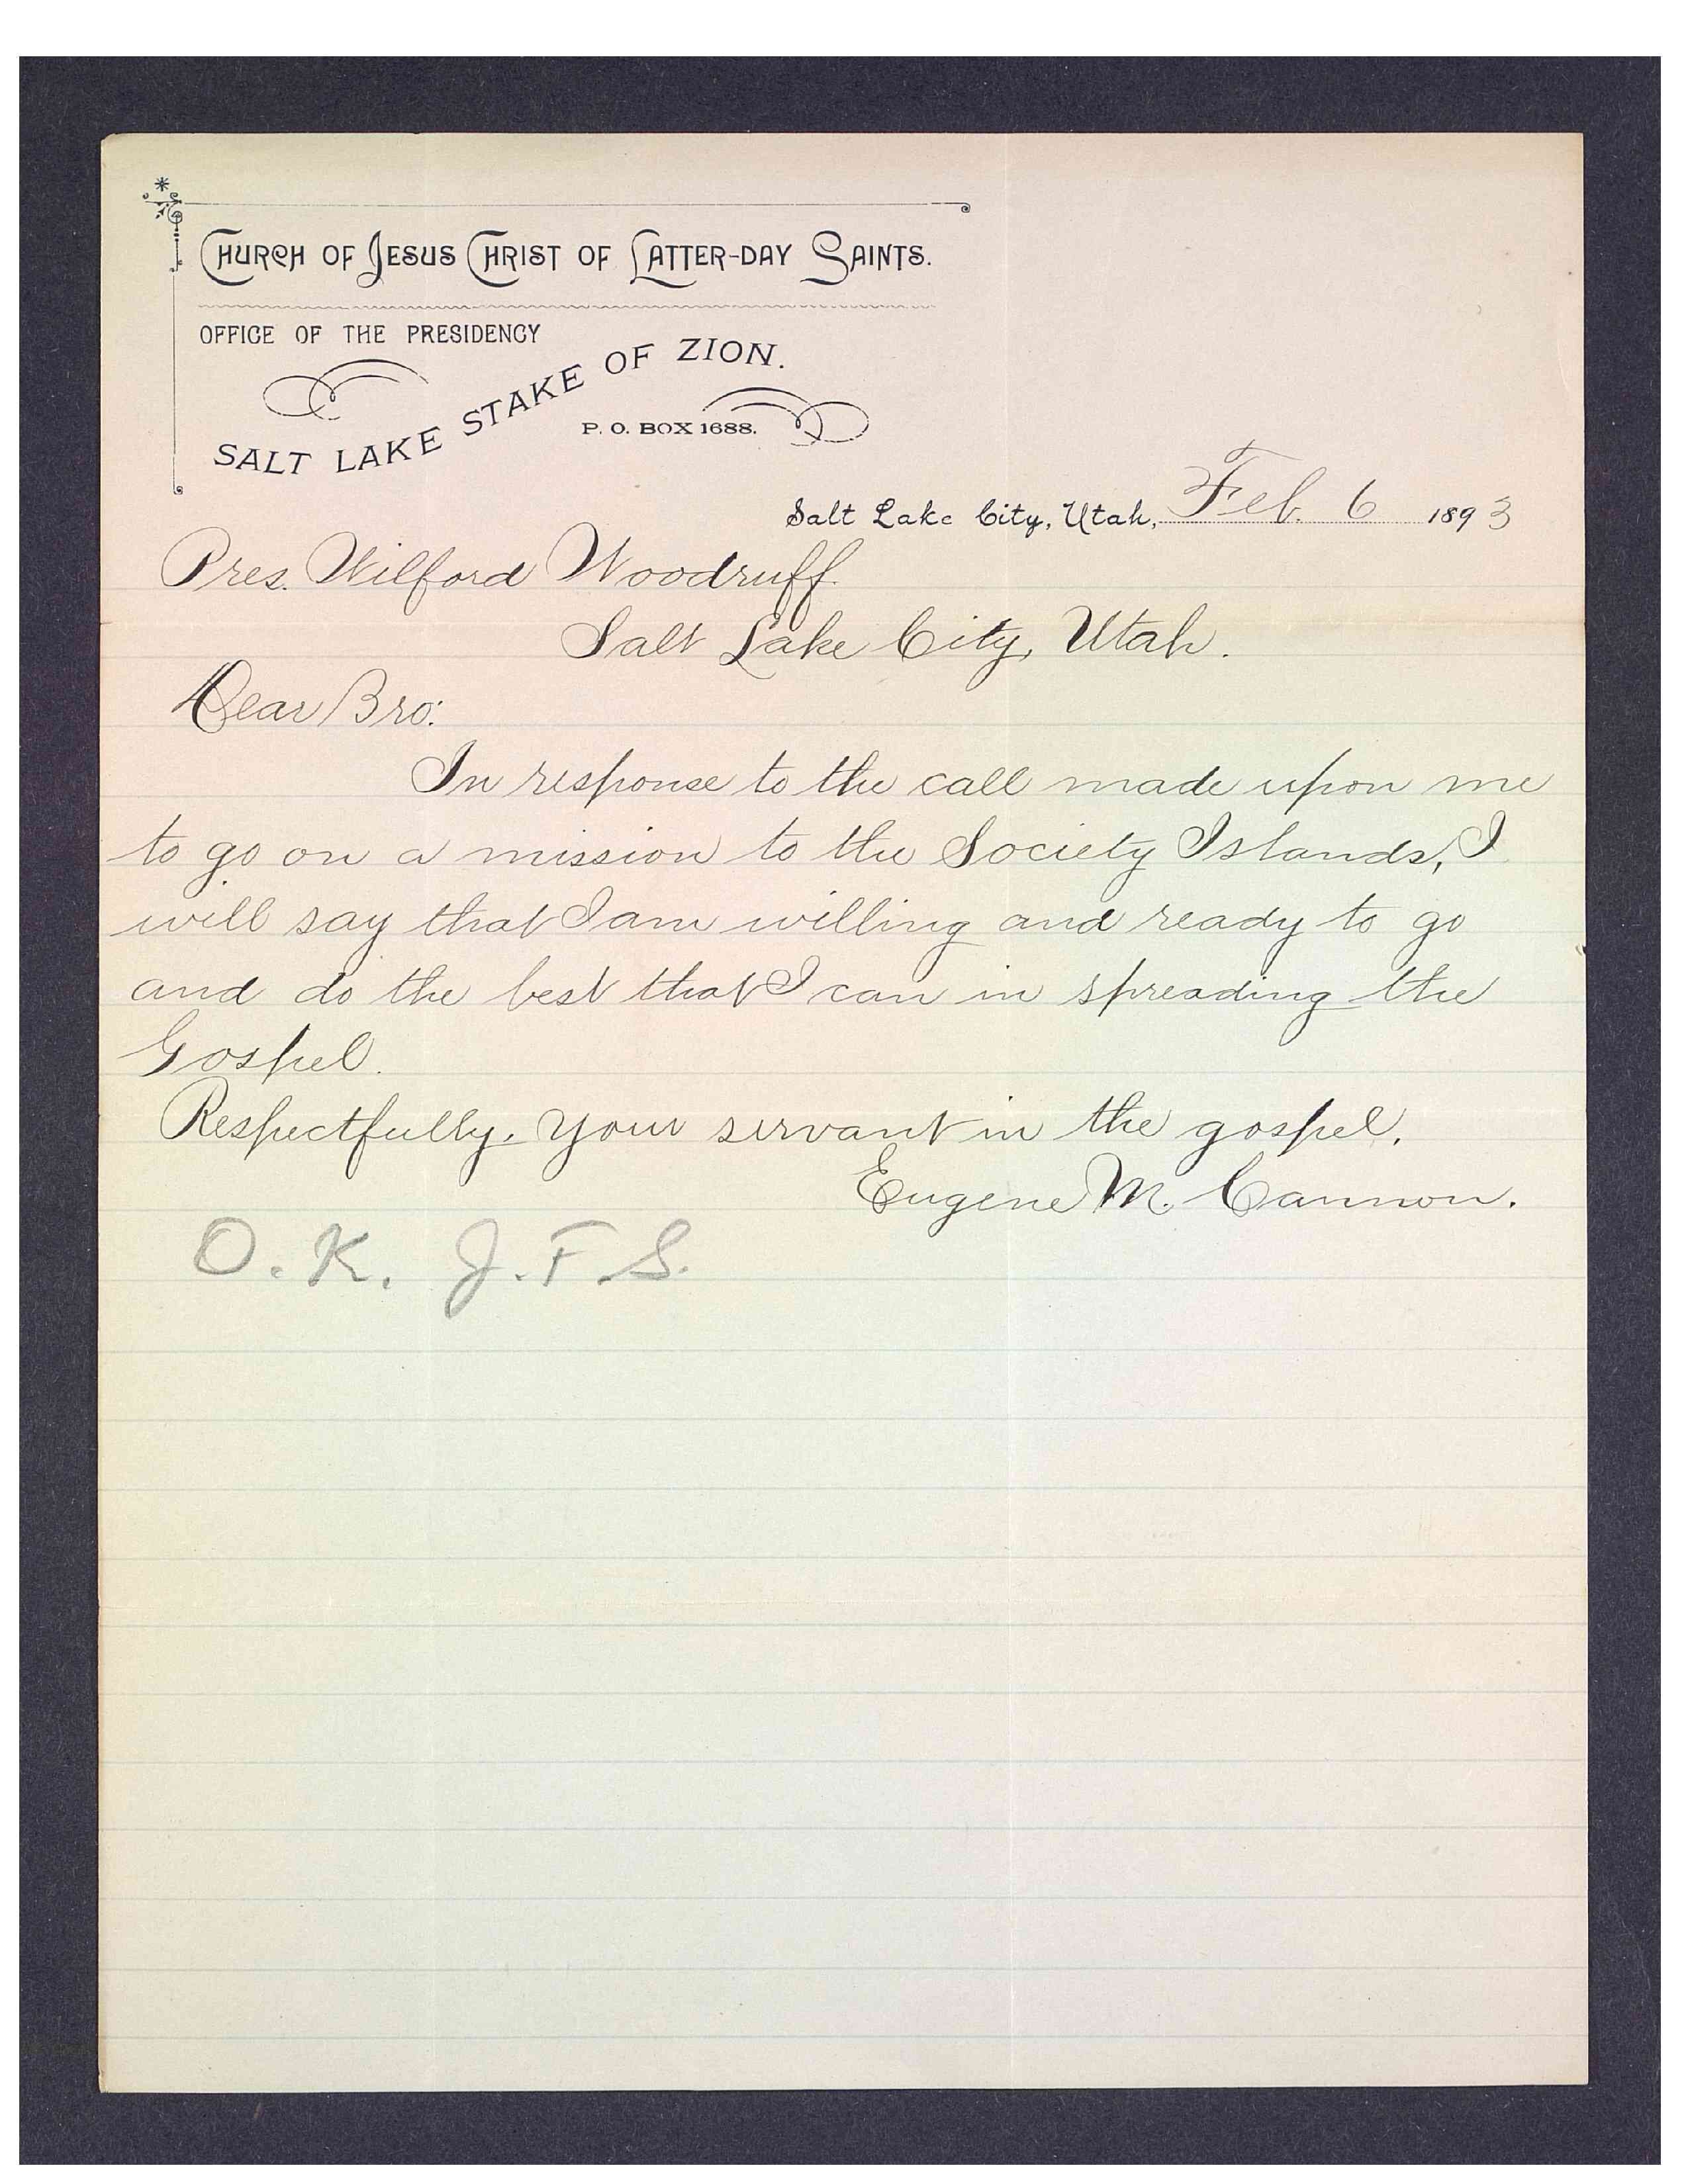 CHURCH OF JESUS CHRIST OF LATTER-DAY SAINTS.
OFFICE OF THE PRESIDENCY
SALT LAKE STAKE OF ZION.
P. O. BOX 1688.
Salt Lake City, Utah, Feb. 6 1893
Pres. Wilford Woodruff.
Salt Lake City, Utah.
Dear Bro:
In response to the call made upon me
to go on a mission to the Society Islands, I
will say that I am willing and ready to go
and do the best that I can in spreading the
Gospel.
Respectfully, your servant in the gospel,
Eugene M. Cannon.
O.K. J.F.S.